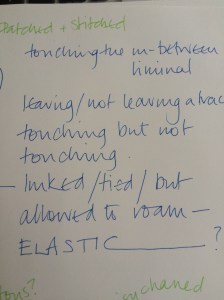 Patched + Stitched
touching the in-between
liminal
leaving/not leaving a trac
touching but not
touching.
— linked/tied/but
allowed to roam —
ELASTIC ______?
unchained